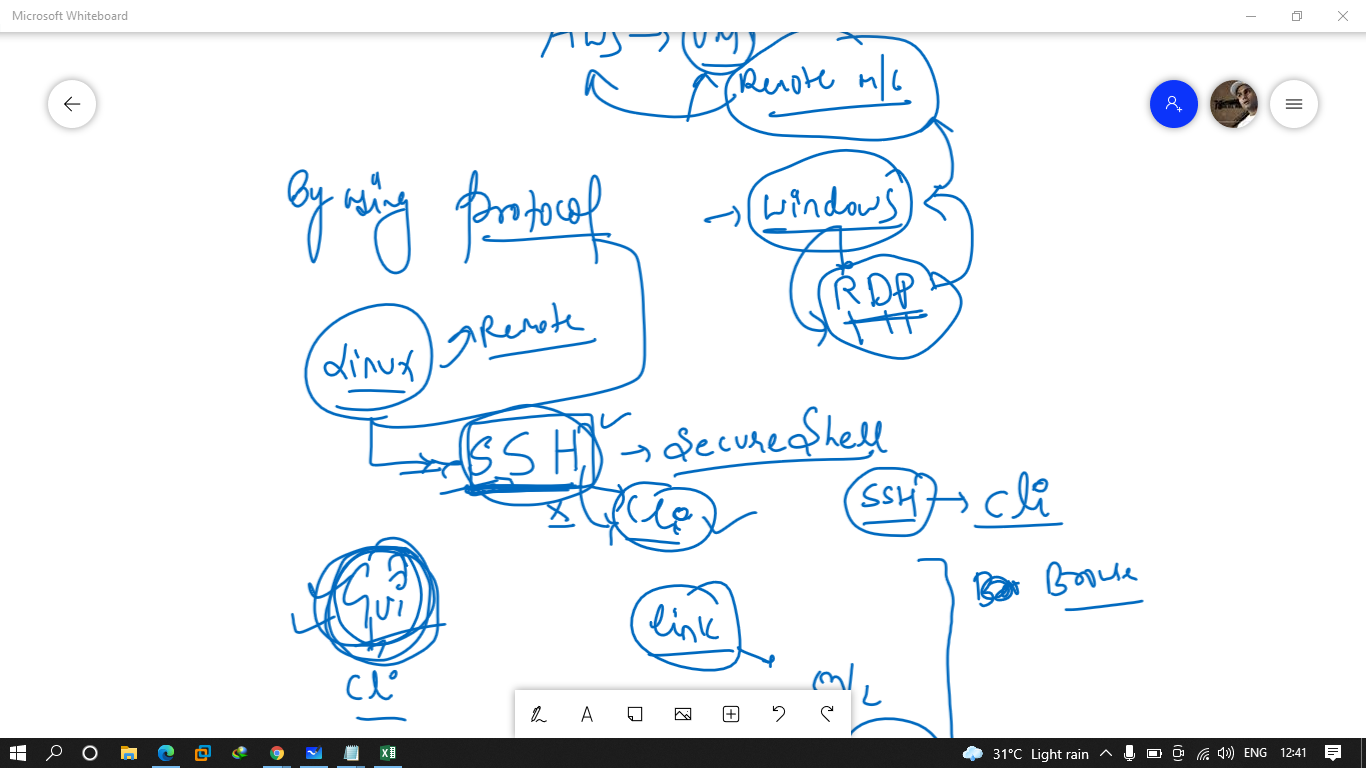 Microsoft Whiteboard
AWS → VM
Remote M/C
By using Protocol
→ Windows
RDP
Linux → Remote
SSH → Secure Shell
x
Cli
SSH → Cli
Gui
Cli
Link
Browse
M/C
A
31°C Light rain
ENG
12:41